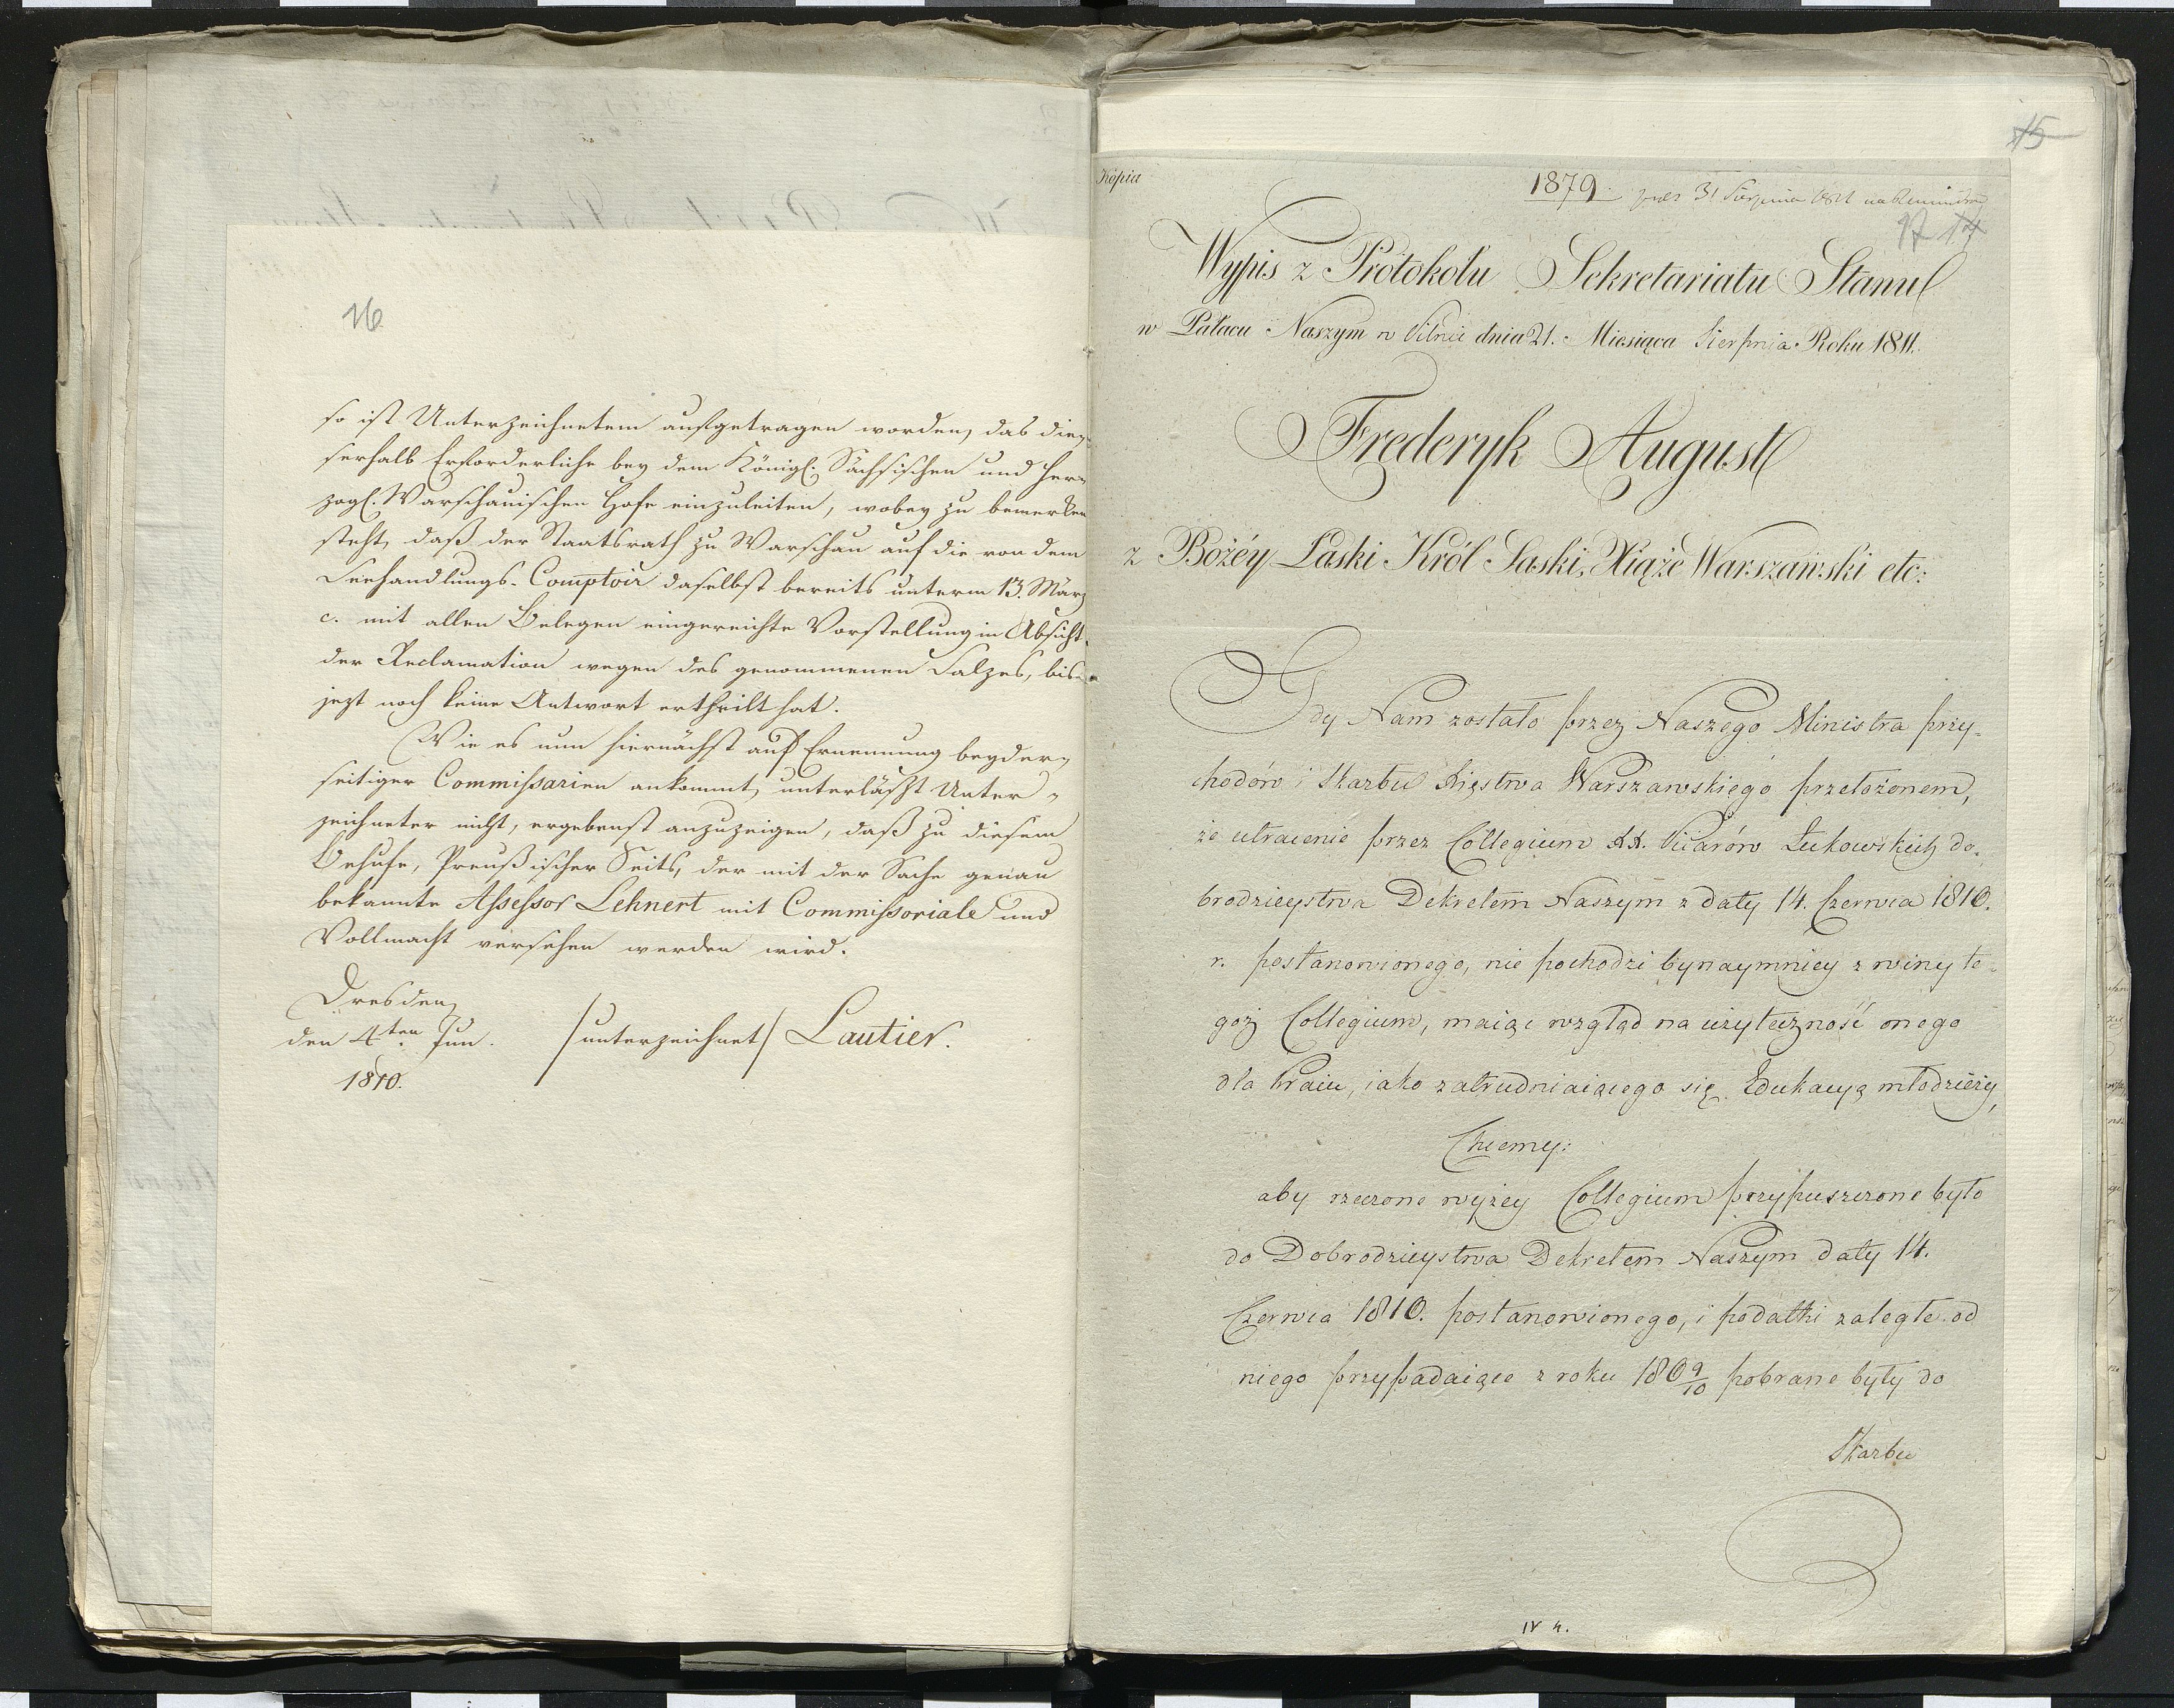 16
so ist Unterzeichnetem aufgetragen worden, das die-
serhalb Erforderliche bey dem Königl. Sächsischen und Her-
zogl. Warschauischen Hofe einzuleiten, wobey zu bemerken
steht, daß der Staatsrath zu Warschau auf die von dem
Seehandlungs-Comptoir daselbst bereits unterm 13. März
c. mit allen Belegen eingereichte Vorstellung in Absicht
der Reclamation wegen des genommenen Salzes, bis
jezt noch keine Antwort ertheilt hat.
Wie es nun hiernächst auf Ernennung beyder-
seitiger Commissarien ankommt, unterläßt Unter-
zeichneter nicht, ergebenst anzuzeigen, daß zu diesem
Behufe, Preußischer Seits, der mit der Sache genau
bekannte Assessor Lehnert mit Commissoriale und
Vollmacht versehen werden wird.
Dresden,
den 4ten Jun. /unterzeichnet/ Lautier.
1810.
15
Kopia
1879. 31 Sierpnia 1811
Wypis z Protokołu Sekretariatu Stanu
w Pałacu Naszym w Pilnic dnia 21. Miesiąca Sierpnia Roku 1811.
Frederyk August
z Bożéy Łaski Król Saski, Xiążę Warszawski etc:
Gdy Nam zostało przez Naszego Ministra przy-
chodów i Skarbu Xięstwa Warszawskiego przełożonem,
że utracenie przez Collegium XX. Piiarów Łukowskich do-
brodzieystwa Dekretem Naszym z daty 14. Czerwca 1810.
r. postanowionego, nie pochodzi bynaymniey z winy te-
goż Collegium, maiąc wzgląd na użyteczność onego
dla Kraiu, iako zatrudniaiącego się Edukacyą młodzieży,
Chcemy:
aby rzeczone wyżey Collegium przypuszczone było
do Dobrodzieystwa Dekretem Naszym daty 14.
Czerwca 1810. postanowionego, i podatki zaległe od
niego przypadaiące z roku 1809/10 pobrane były do
Skarbu
IV 4.